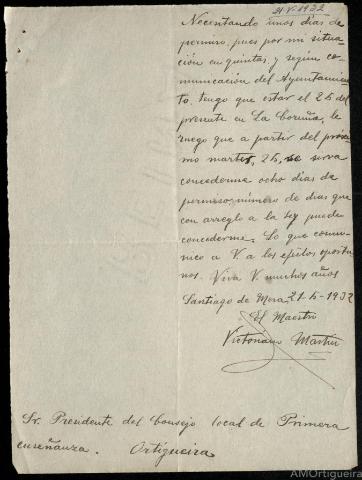 21-V-1932
Necesitando unos días de
permiso, pues por mi situa-
ción en quintas, y según co-
municación del Ayuntamien-
to, tengo que estar el 25 del
presente en La Coruña, le
ruego que a partir del próxi-
mo martes, 25, se sirva
concederme ocho días de
permiso, número de dias que
con arreglo a la ley puede
concederme. Lo que comu-
nico a V a los efectos oportu-
nos. Viva V muchos años
Santiago de Mera 21-5-1932
El Maestro
Victoriano Martín
Sr. Presidente del Consejo local de Primera
enseñanza. Ortigueira
AMOrtigueira